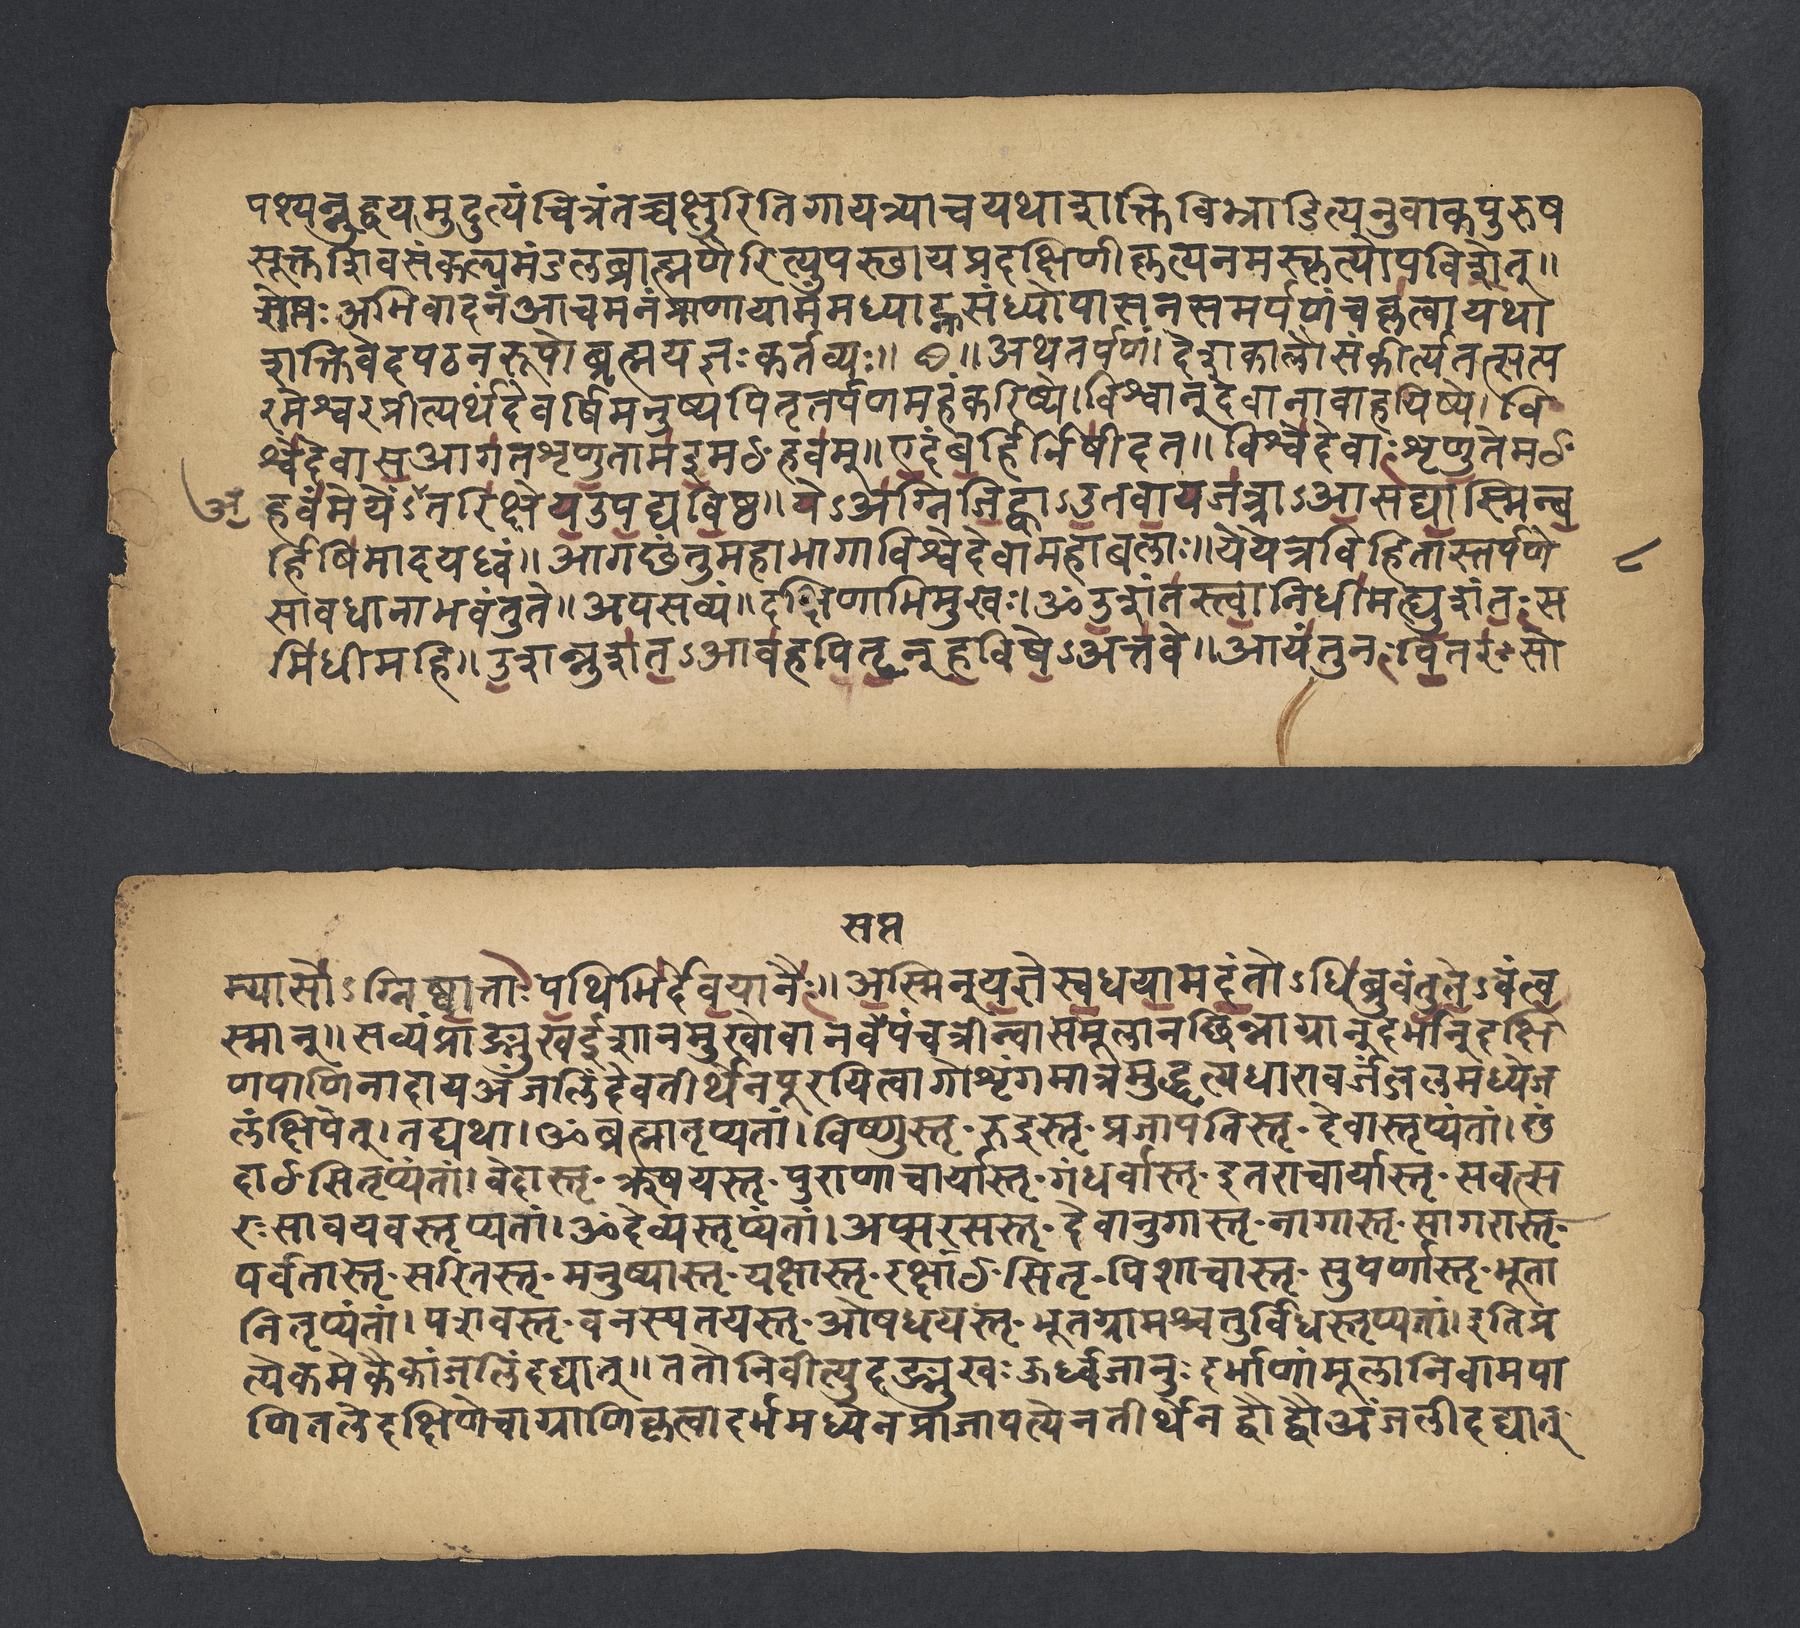 पश्यन्नुद्वयमुदुत्यंचित्रंतच्चक्षुरितिगायत्र्याचयथाशक्तिविभ्राडित्यनुवाकपुरुष
सूक्तशिवसंकल्पमंडलब्राह्मणैरित्युपस्थायप्रदक्षिणीकृत्यनमस्कृत्योपविशेत्॥
अभिवादनंआचमनंप्राणायामंमध्याह्नसंध्योपासनसमर्पणंचकृत्वायथा
शक्तिवेदपठनरूपोब्रह्मयज्ञःकर्तव्यः॥ ७ ॥अथतर्पणं।देशकालौसंकीर्त्यतत्सत्प
रमेश्वरप्रीत्यर्थंदेवर्षिमनुष्यपितृतर्पणमहंकरिष्ये।विश्वान्देवानावाहयिष्ये।वि
श्वेदेवासआगतशृणुतामइमꣳहवम्॥एदंबर्हिर्निषीदत॥विश्वेदेवाःशृणुतेमꣳ
हवंमेयेऽंतरिक्षेयउपद्यविष्ठ॥येऽअग्निजिह्वाऽउतवायजत्राऽआसद्यास्मिन्ब
अं
र्हिषिमादयध्वं॥आगछंतुमहाभागाविश्वेदेवामहाबलाः॥येयत्रविहितास्तर्पणे
८
सावधानाभवंतुते॥अपसव्यं॥दक्षिणाभिमुखः।ॐउशंतस्त्वानिधीमह्युशंतःस
मिधीमहि॥उशन्नुशतऽआवहपितॄन्हविषेऽअत्तवे॥आयंतुनःपितरःसो
सप्त
म्यासोऽग्निष्वात्ताःपथिभिर्देवयानैः॥अस्मिन्यज्ञेस्वधयामदंतोऽधिब्रुवंतुतेऽवंत्व
स्मान्॥सव्यंप्राङ्मुखईशानमुखोवानवैपंचत्रीन्वासमूलानछिन्नाग्रान्दर्भान्दक्षि
णपाणिनादायअंजलिंदेवतीर्थेनपूरयित्वागोशृंगमात्रमुद्धृत्यधारावर्ज्जंजलमध्येज
लंक्षिपेत्।तद्यथा।ॐब्रह्मातृप्यतां।विष्णुस्तृ॰रुद्रस्तृ॰प्रजापतिस्तृ॰देवास्तृप्यंतां।छं
दाꣳसितृप्यंतां।वेदास्तृ॰ऋषयस्तृ॰पुराणाचार्यास्तृ॰गंधर्वास्तृ॰इतराचार्यास्तृ॰सवत्स
रःसावयवस्तृप्यतां।ॐदेव्यस्तृप्यंतां।अप्सरसस्तृ॰देवानुगास्तृ॰नागास्तृ॰सागरास्तृ॰
पर्वतास्तृ॰सरितस्तृ॰मनुष्यास्तृ॰यक्षास्तृ॰रक्षांꣳसितृ॰पिशाचास्तृ॰सुपर्णास्तृ॰भूता
नितृप्यंतां।पशवस्तृ॰वनस्पतयस्तृ॰ओषधयस्तृ॰भूतग्रामश्चतुर्विधस्तृप्यतां।इतिप्र
त्येकमेकैकांजलिंदद्यात्॥ततोनिवीत्युदङ्मुखःऊर्ध्वजानुःदर्भाणांमूलानिवामपा
णितलेदक्षिणेचाग्राणिकृत्वादर्भमध्येनप्राजापत्येनतीर्थेनद्वौद्वौअंजलीदद्यात्